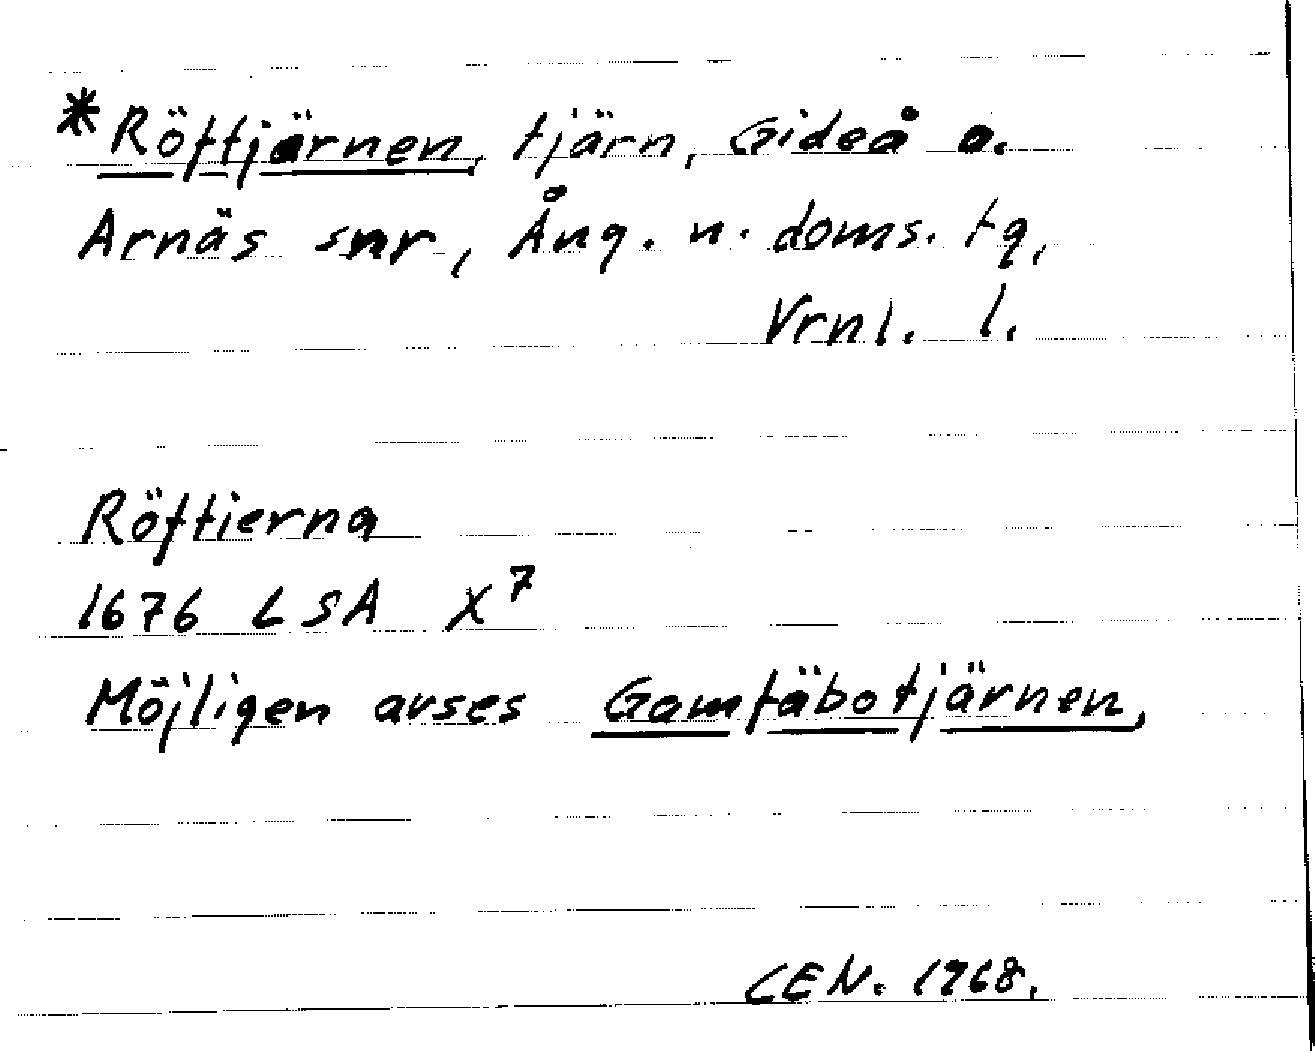 *Röftjärnen, tjärn, Gideå o.
Arnäs snr, Ång. n. doms. tg,
Vrnl. l.
Röftierna
1676 LSA X⁷
Möjligen avses Gamfäbotjärnen,
CEN. 1968.